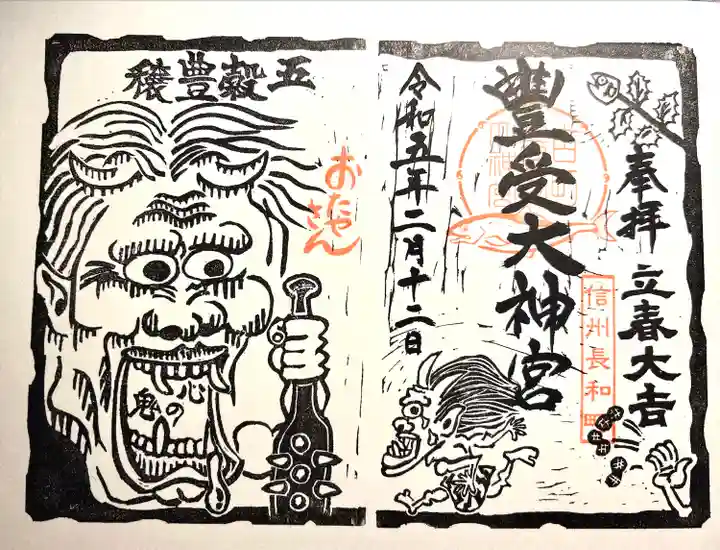 奉拝 立春大吉
信州長和町
豐受大神宮
令和五年二月十二日
五穀豊穣
おたや
さん
心の
鬼